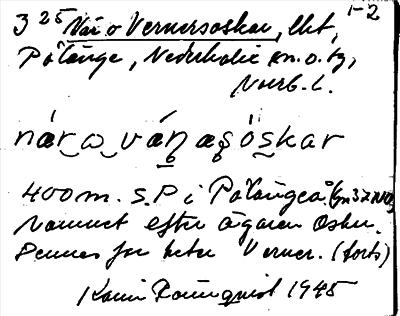 1-2
325 När o Vernersoskar, lht,
Pålänge, Nederkalix sn. o. tg,
Norrb. l.
nár ω ván̥ as̥óskar
400 m. S. P i Pålängeå. (Gn 3 Z NO)
Namnet efter ägaren Oskar.
Dennes far heter Verner. (forts)
Karin Rönnquist 1945